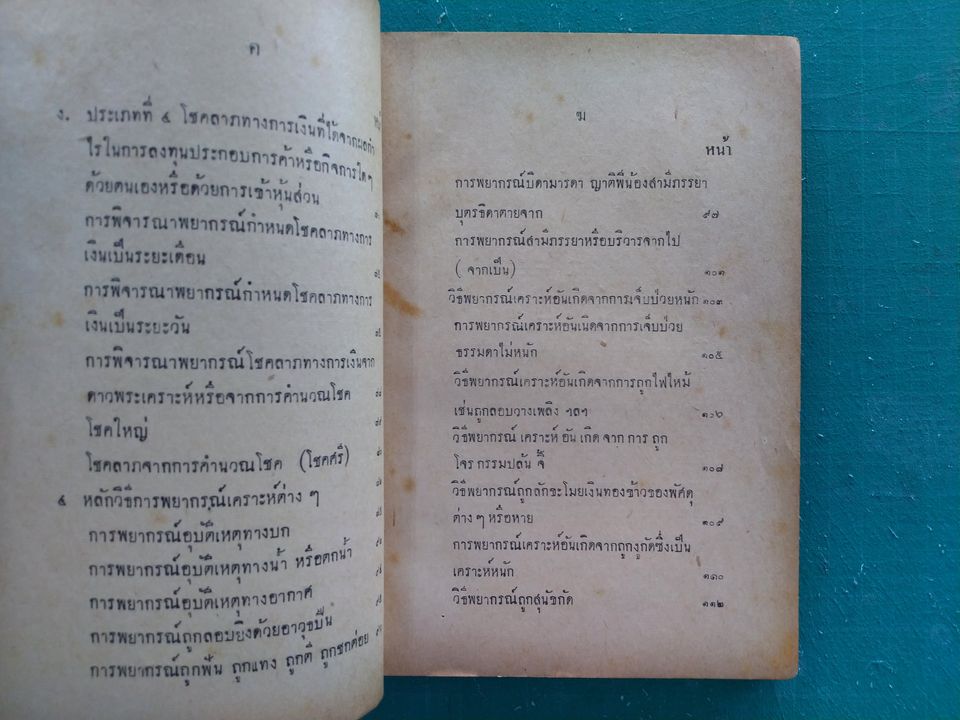 ค
ง. ประเภทที่ ๔ โชคลาภทางการเงินที่ได้จากผลกำ
ไรในการลงทุนประกอบการค้าหรือกิจการใดๆ
ด้วยตนเองหรือด้วยการเข้าหุ้นส่วน
การพิจารณาพยากรณ์กำหนดโชคลาภทางการ
เงินเป็นระยะเดือน
การพิจารณาพยากรณ์กำหนดโชคลาภทางการ
เงินเป็นระยะวัน
การพิจารณาพยากรณ์โชคลาภทางการเงินจาก
ดาวพระเคราะห์หรือจากการคำนวณโชค
โชคใหญ่
โชคลาภจากการคำนวณโชค (โชคศรี)
๔ หลักวิธีการพยากรณ์เคราะห์ต่าง ๆ
การพยากรณ์อุบัติเหตุทางบก
การพยากรณ์อุบัติเหตุทางน้ำ หรือตกน้ำ
การพยากรณ์อุบัติเหตุทางอากาศ
การพยากรณ์ถูกลอบยิงด้วยอาวุธปืน
การพยากรณ์ถูกฟัน ถูกแทง ถูกตี ถูกชกต่อย
ฆ
หน้า
การพยากรณ์บิดามารดา ญาติพี่น้องสามีภรรยา
บุตรธิดาตายจาก ๙๗
การพยากรณ์สามีภรรยาหรือบริวารจากไป
( จากเป็น) ๑๐๑
วิธีพยากรณ์เคราะห์อันเกิดจากการเจ็บป่วยหนัก ๑๐๓
การพยากรณ์เคราะห์อันเนิดจากการเจ็บป่วย
ธรรมดาไม่หนัก ๑๐๕
วิธีพยากรณ์เคราะห์อันเกิดจากการถูกไฟไหม้
เช่นถูกลอบวางเพลิง ฯลฯ ๑๐๖
วิธีพยากรณ์ เคราะห์ อัน เกิด จาก การ ถูก
โจร กรรมปล้น จี้ ๑๐๗
วิธีพยากรณ์ถูกลักขะโมยเงินทองข้าวของพัศดุ
ต่าง ๆ หรือหาย ๑๐๙
การพยากรณ์เคราะห์อันเกิดจากถูกงูกัดซึ่งเป็น
เคราะห์หนัก ๑๑๐
วิธีพยากรณ์ถูกสุนัขกัด ๑๑๒